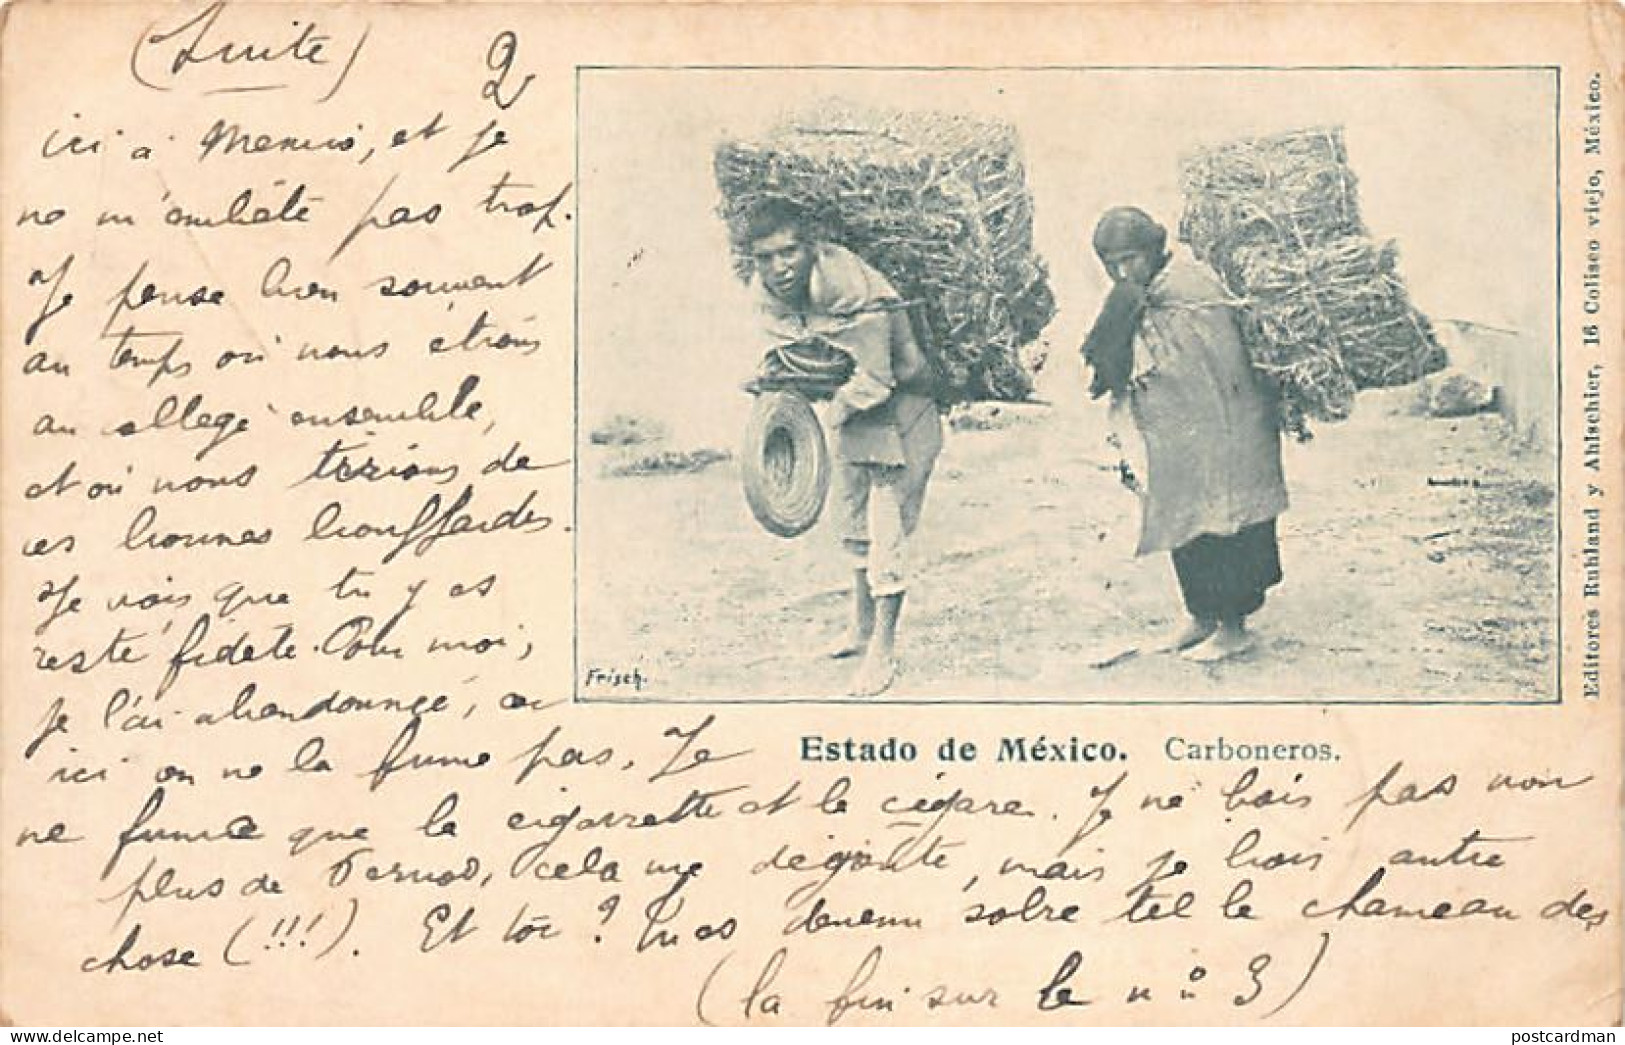 (Suite)
2
ici à Mexico, et je
ne m'embête pas trop.
Je pense bien souvent
au temps où nous étions
au collège ensemble,
et où nous tirions de
ces bonnes bouffardes.
Je vois que tu y es
resté fidèle. Pour moi,
je l'ai abandonnée, car
ici on ne la fume pas. Je
ne fume que la cigarette et le cigare. Je ne bois pas non
plus de Pernod, cela me dégoûte, mais je bois autre
chose (!!!). Et toi ? tu es devenu sobre tel le chameau des
(la fin sur le n° 3)
Frisch.
Estado de México. Carboneros.
Editores Ruhland y Ahlschier, 16 Coliseo viejo, México.
postcardman